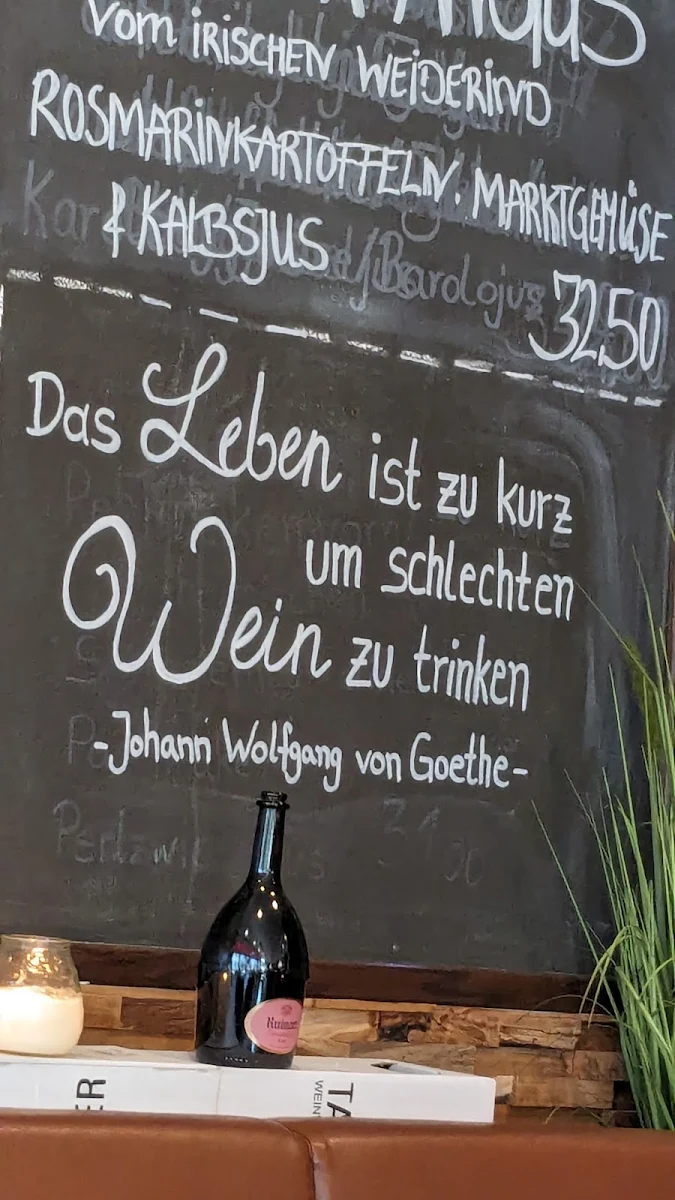 Angus
Vom IRISCHEN WEIDERIND
ROSMARINKARTOFFELN, MARKTGEMÜSE
& KALBSJUS
32.50
Das Leben ist zu kurz
um schlechten
Wein zu trinken
-Johann Wolfgang von Goethe-
Ruinart